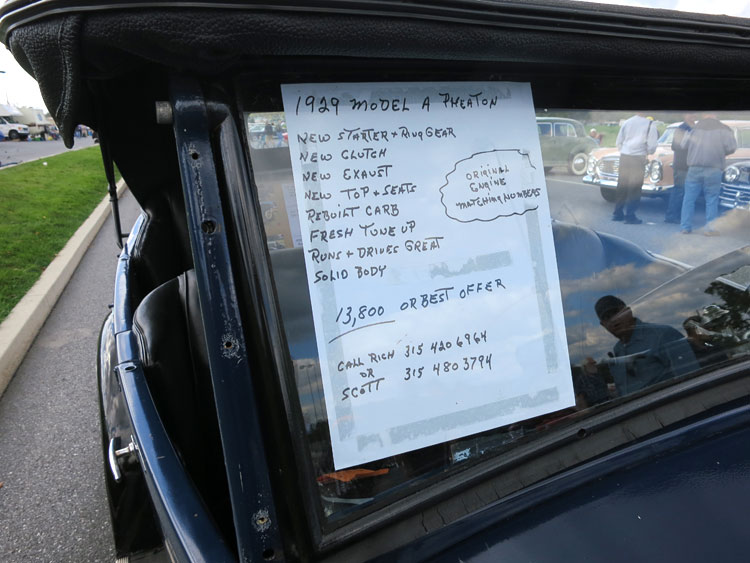 1929 MODEL A PHEATON
NEW STARTER + RING GEAR
NEW CLUTCH
NEW EXAUST
NEW TOP & SEATS
REBUILT CARB
FRESH TUNE UP
RUNS + DRIVES GREAT
SOLID BODY
ORIGINAL
ENGINE
MATCHING NUMBERS
13,800 OR BEST OFFER
CALL RICH 315 420 6964
OR
SCOTT 315 480 3794